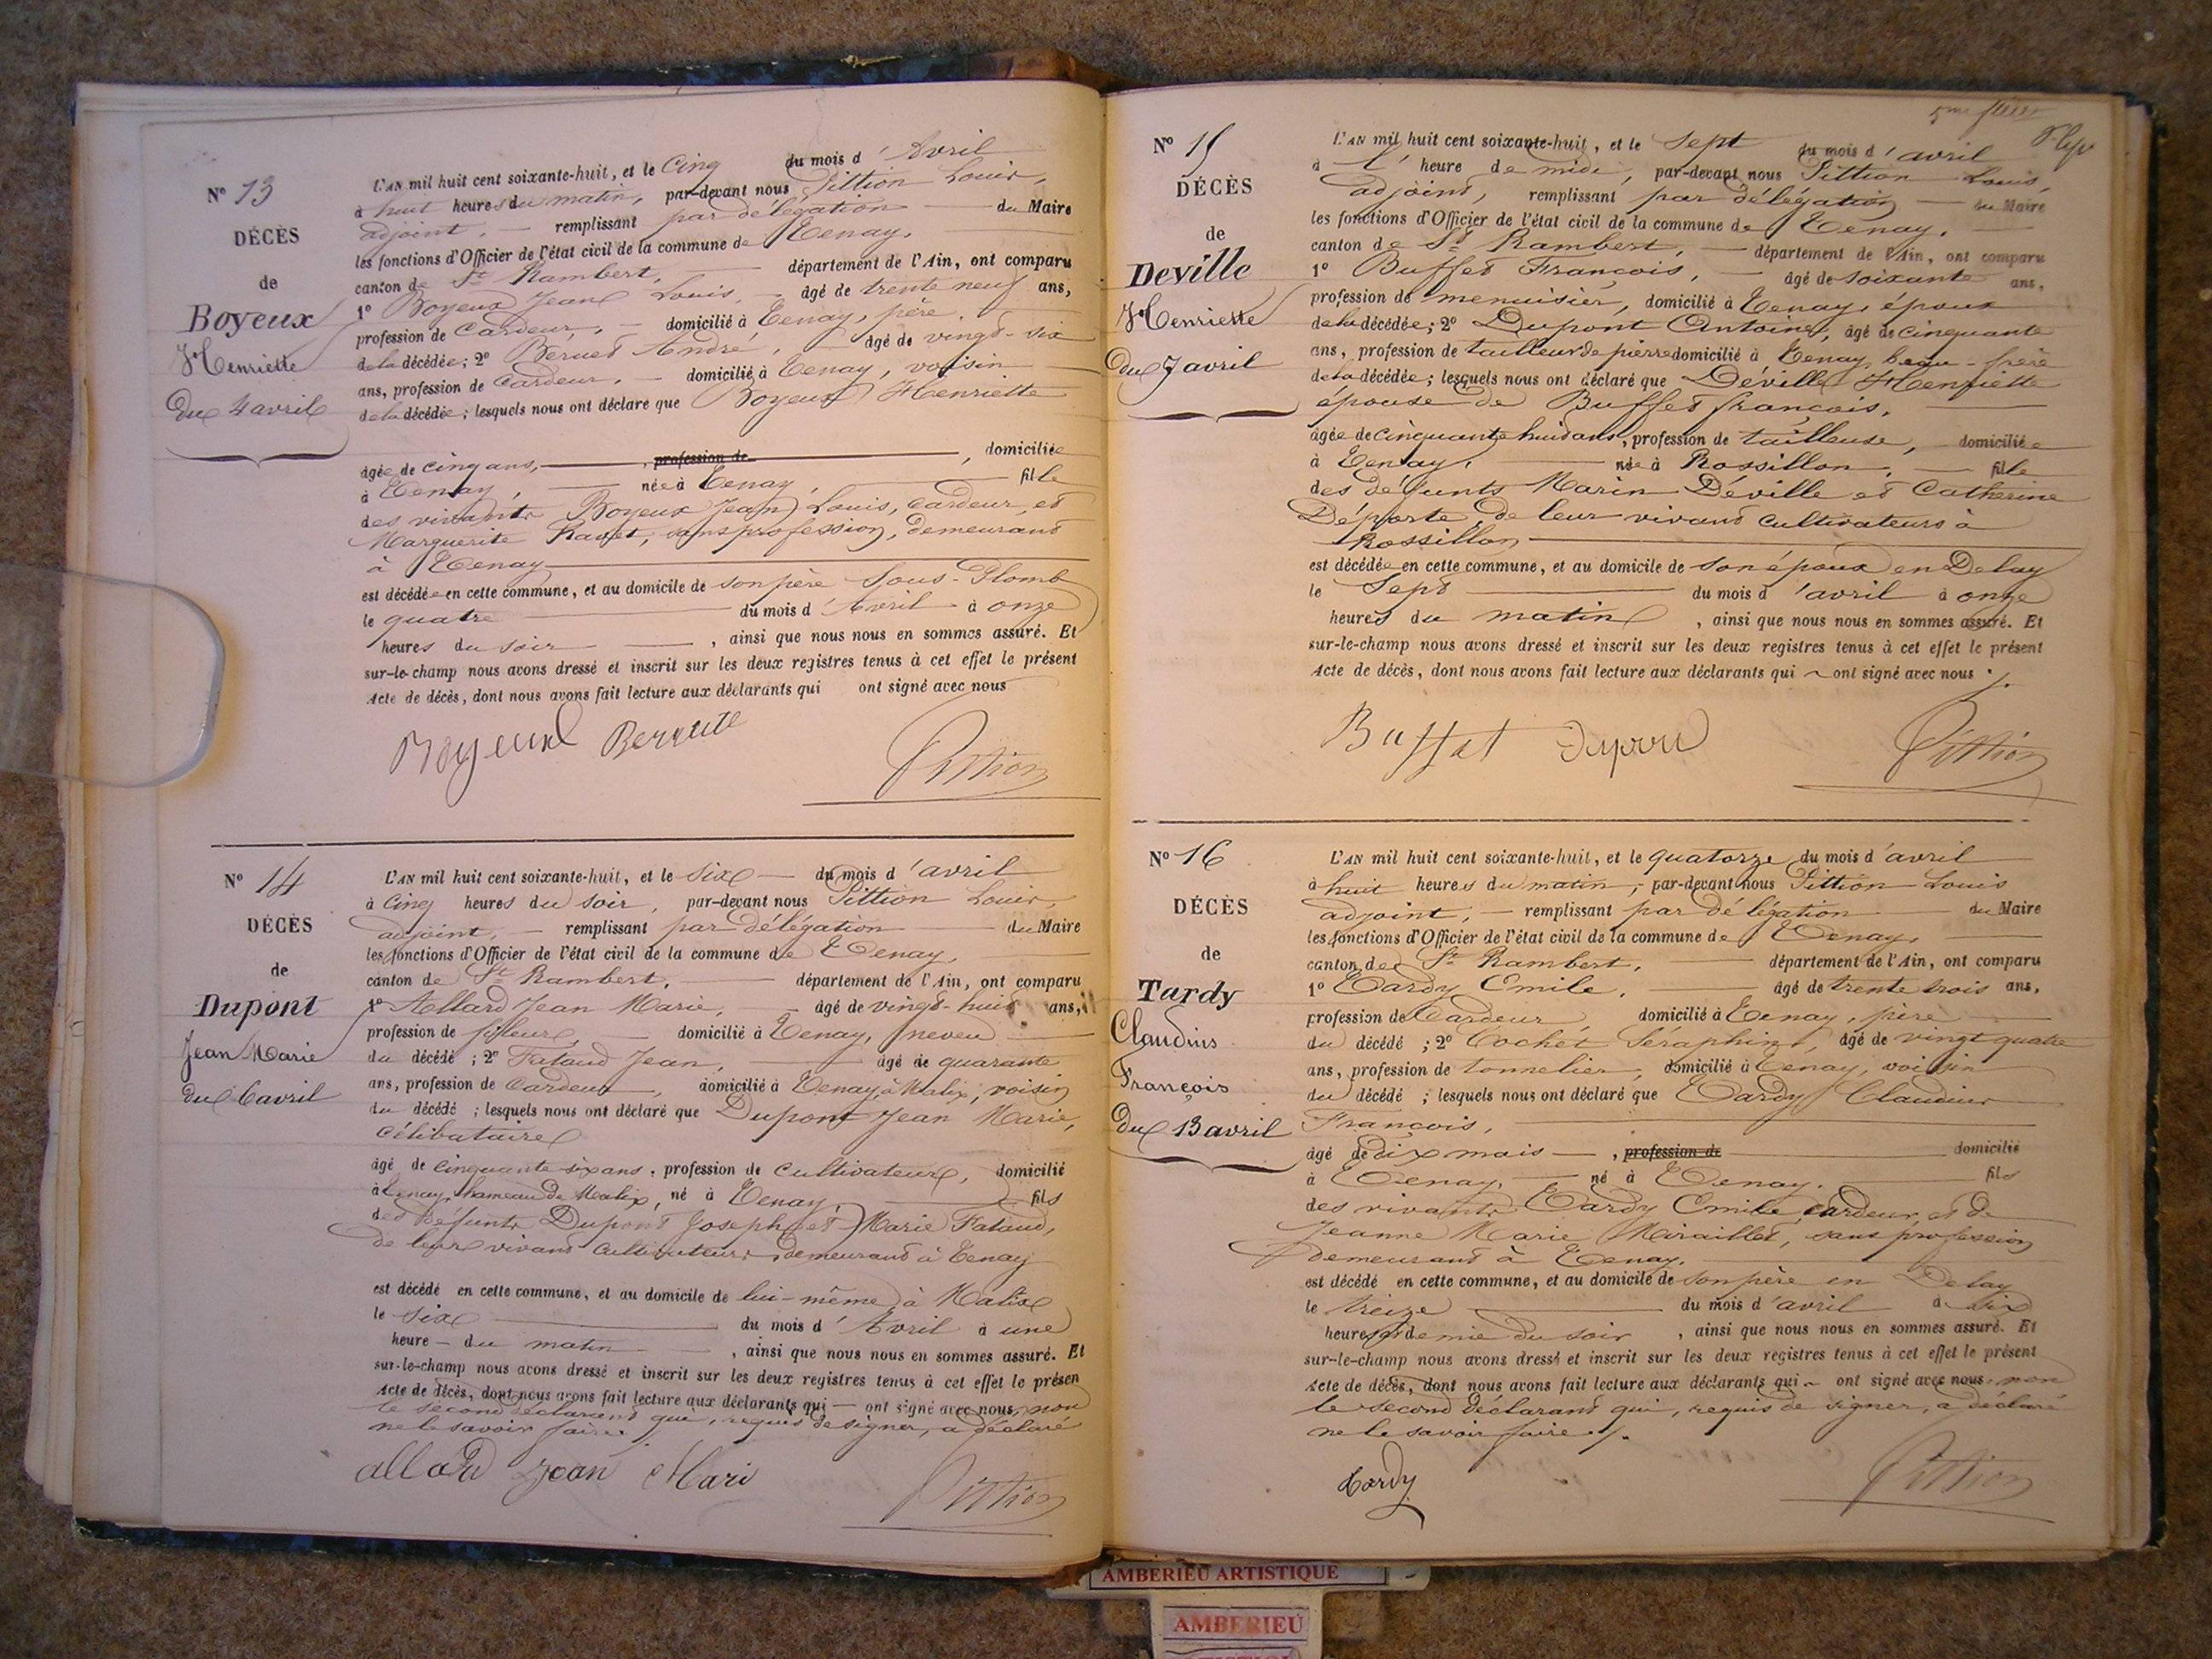 N° 13
DÉCÈS
de
Boyeux
Henriette
Du 4 avril
L'AN mil huit cent soixante-huit, et le Cinq du mois d'Avril
à huit heures du matin, par-devant nous Pittion Louis,
adjoint, remplissant par délégation du Maire
les fonctions d'Officier de l'état civil de la commune de Tenay,
canton de St Rambert, département de l'Ain, ont comparu
1° Boyeux Jean Louis, âgé de trente neuf ans,
profession de Cardeur, domicilié à Tenay, père
de la décédée; 2° Bernet André, âgé de vingt-six
ans, profession de Cardeur, domicilié à Tenay, voisin
de la décédée; lesquels nous ont déclaré que Boyeux Henriette
agée de cinq ans, profession de domiciliée
à Tenay, née à Tenay, fille
des vivants Boyeux Jean Louis, cardeur, et
Marguerite Ravet, sans profession, demeurant
à Tenay
est décédée en cette commune, et au domicile de son père Sous-Plomb
le quatre du mois d'Avril à onze
heures du soir, ainsi que nous nous en sommes assuré. Et
sur-le-champ nous avons dressé et inscrit sur les deux registres tenus à cet effet le présent
Acte de décès, dont nous avons fait lecture aux déclarants qui ont signé avec nous
Boyeux Pittion
N° 14
DÉCÈS
de
Dupont
Jean Marie
du 6 avril
L'AN mil huit cent soixante-huit, et le six du mois d'avril
à cinq heures du soir, par-devant nous Pittion Louis,
adjoint, remplissant par délégation du Maire
les fonctions d'Officier de l'état civil de la commune de Tenay,
canton de St Rambert, département de l'Ain, ont comparu
1° Allard Jean Marie, âgé de vingt-huit ans,
profession de fileur, domicilié à Tenay, neveu
du décédé; 2° Fataud Jean, âgé de quarante
ans, profession de Cardeur, domicilié à Tenay, à Malix, voisin
du décédé; lesquels nous ont déclaré que Dupont Jean Marie,
célibataire
âgé de cinquante-six ans, profession de cultivateur, domicilié
à Tenay, hameau de Malix, né à Tenay, fils
des défunts Dupont Joseph et Marie Fataud,
de leur vivant cultivateurs, demeurant à Tenay
est décédé en cette commune, et au domicile de lui-même à Malix
le six du mois d'Avril à une
heure du matin, ainsi que nous nous en sommes assuré. Et
sur-le-champ nous avons dressé et inscrit sur les deux registres tenus à cet effet le présen
Acte de décès, dont nous avons fait lecture aux déclarants qui ont signé avec nous, non
le second déclarant qui, requis de signer, a déclaré
ne le savoir faire ./.
allard Jean Mari Pittion
5me
N° 15
DÉCÈS
de
Deville
Henriette
Du 7 avril
L'AN mil huit cent soixante-huit, et le sept du mois d'avril
à l'heure de midi, par-devant nous Pittion Louis,
adjoint, remplissant par délégation du Maire
les fonctions d'Officier de l'état civil de la commune de Tenay,
canton de St Rambert, département de l'Ain, ont comparu
1° Buffet François, âgé de soixante ans,
profession de menuisier, domicilié à Tenay, époux
de la décédée; 2° Dupont Antoine, âgé de cinquante
ans, profession de tailleur de pierre domicilié à Tenay, beau-frère
de la décédée; lesquels nous ont déclaré que Déville Henriette
épouse de Buffet françois,
âgée de cinquante huit ans, profession de tailleuse, domiciliée
à Tenay, née à Rossillon, fille
des défunts Marin Déville et Catherine
Déporte, de leur vivant cultivateurs à
Rossillon
est décédée en cette commune, et au domicile de son époux en Delay
le Sept du mois d'avril à onze
heures du matin, ainsi que nous nous en sommes assuré. Et
sur-le-champ nous avons dressé et inscrit sur les deux registres tenus à cet effet le présent
Acte de décès, dont nous avons fait lecture aux déclarants qui ont signé avec nous ./.
Buffat Pittion
N° 16
DÉCÈS
de
Tardy
Claudius
François
Du 13 avril
L'AN mil huit cent soixante-huit, et le quatorze du mois d'avril
à huit heures du matin, par-devant nous Pittion Louis
adjoint, remplissant par délégation du Maire
les fonctions d'Officier de l'état civil de la commune de Tenay,
canton de St Rambert, département de l'Ain, ont comparu
1° Tardy Emile, âgé de trente trois ans,
profession de Cardeur, domicilié à Tenay, père
du décédé; 2° Cochet Séraphin, âgé de vingt quatre
ans, profession de tonnelier, domicilié à Tenay, voisin
du décédé; lesquels nous ont déclaré que Tardy Claudius
François,
âgé de dix mois, profession de domicilié
à Tenay, né à Tenay, fils
des vivants Tardy Emile, cardeur, et de
Jeanne Marie Miraillet, sans profession
demeurant à Tenay,
est décédé en cette commune, et au domicile de son père en Delay
le treize du mois d'avril à six
heures et demie du soir, ainsi que nous nous en sommes assuré. Et
sur-le-champ nous avons dressé et inscrit sur les deux registres tenus à cet effet le présent
Acte de décès, dont nous avons fait lecture aux déclarants qui ont signé avec nous, non
le second déclarant qui, requis de signer, a déclaré
ne le savoir faire ./.
Tardy Pittion
AMBERIEU ARTISTIQUE
AMBERIEU